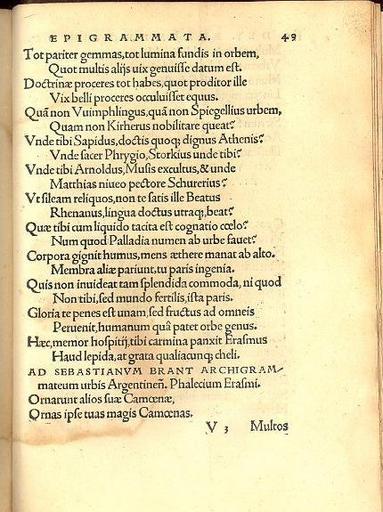 EPIGRAMMATA. 49
Tot pariter gemmas, tot lumina fundis in orbem,
Quot multis alijs uix genuisse datum est.
Doctrinæ proceres tot habes, quot proditor ille
Vix belli proceres occuluisset equus.
Quã non Vuimphlingus, quã non Spiegellius urbem,
Quam non Kirherus nobilitare queat?
Vnde tibi Sapidus, doctis quoq; dignus Athenis?
Vnde sacer Phrygio, Storkius unde tibi?
Vnde tibi Arnoldus, Musis excultus, & unde
Matthias niueo pectore Schurerius?
Vt sileam reliquos, non te satis ille Beatus
Rhenanus, lingua doctus utraq;, beat?
Quæ tibi cum liquido tacita est cognatio cœlo?
Num quod Palladia numen ab urbe fauet?
Corpora gignit humus, mens æthere manat ab alto.
Membra aliæ pariunt, tu paris ingenia.
Quis non inuideat tam splendida commoda, ni quod
Non tibi, sed mundo fertilis, ista paris.
Gloria te penes est unam, sed fructus ad omneis
Peruenit, humanum quâ patet orbe genus.
Hæc, memor hospitij, tibi carmina panxit Erasmus
Haud lepida, at grata qualiacunq; cheli.
AD SEBASTIANVM BRANT ARCHIGRAM/
mateum urbis Argentineñ. Phalecium Erasmi.
Ornarunt alios suæ Camœnæ,
Ornas ipse tuas magis Camœnas.
V 3 Multos